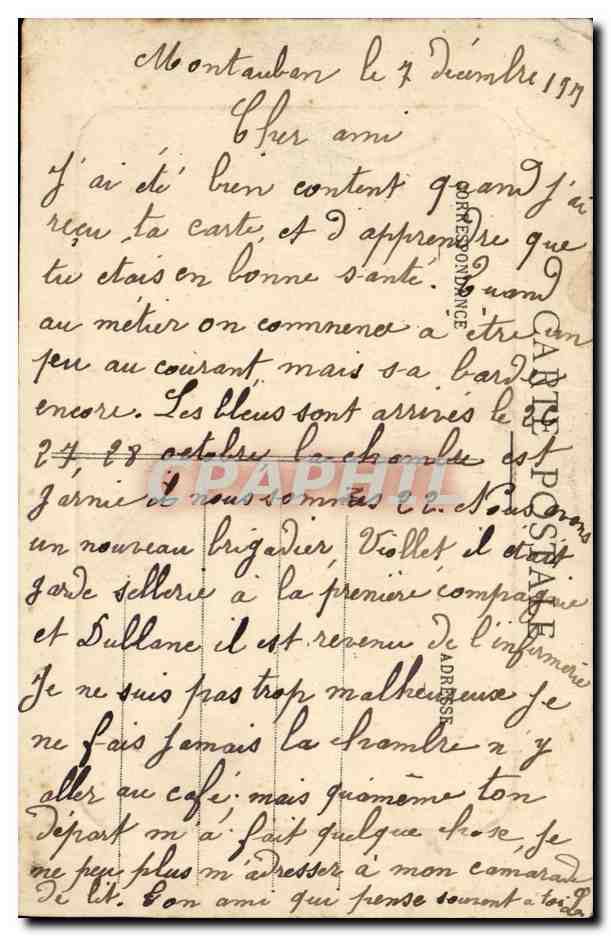 Montauban le 7 décembre 19
Cher ami
J'ai été bien content quand j'ai
reçu ta carte, et d'apprendre que
tu etais en bonne santé. Quand
au métier on commence a être un
peu au courant mais sa barde
encore. Les bleus sont arrivés le
27, 28 octobre la chambre est
garnie il nous sommes 22. Nous avons
un nouveau brigadier, Viollet il etait
garde sellerie à la première compagnie
et Dullane il est revenu de l'infirmerie
Je ne suis pas trop malheureuse je
ne fais jamais la chambre n'y
aller au café. mais quamême ton
départ m'a fait quelque chose, je
ne peu plus m'adresser à mon camarade
de lit. Ton ami qui pense souvent a toi
CORRESPONDANCE
CARTE POSTALE
ADRESSE
CPAPHIL